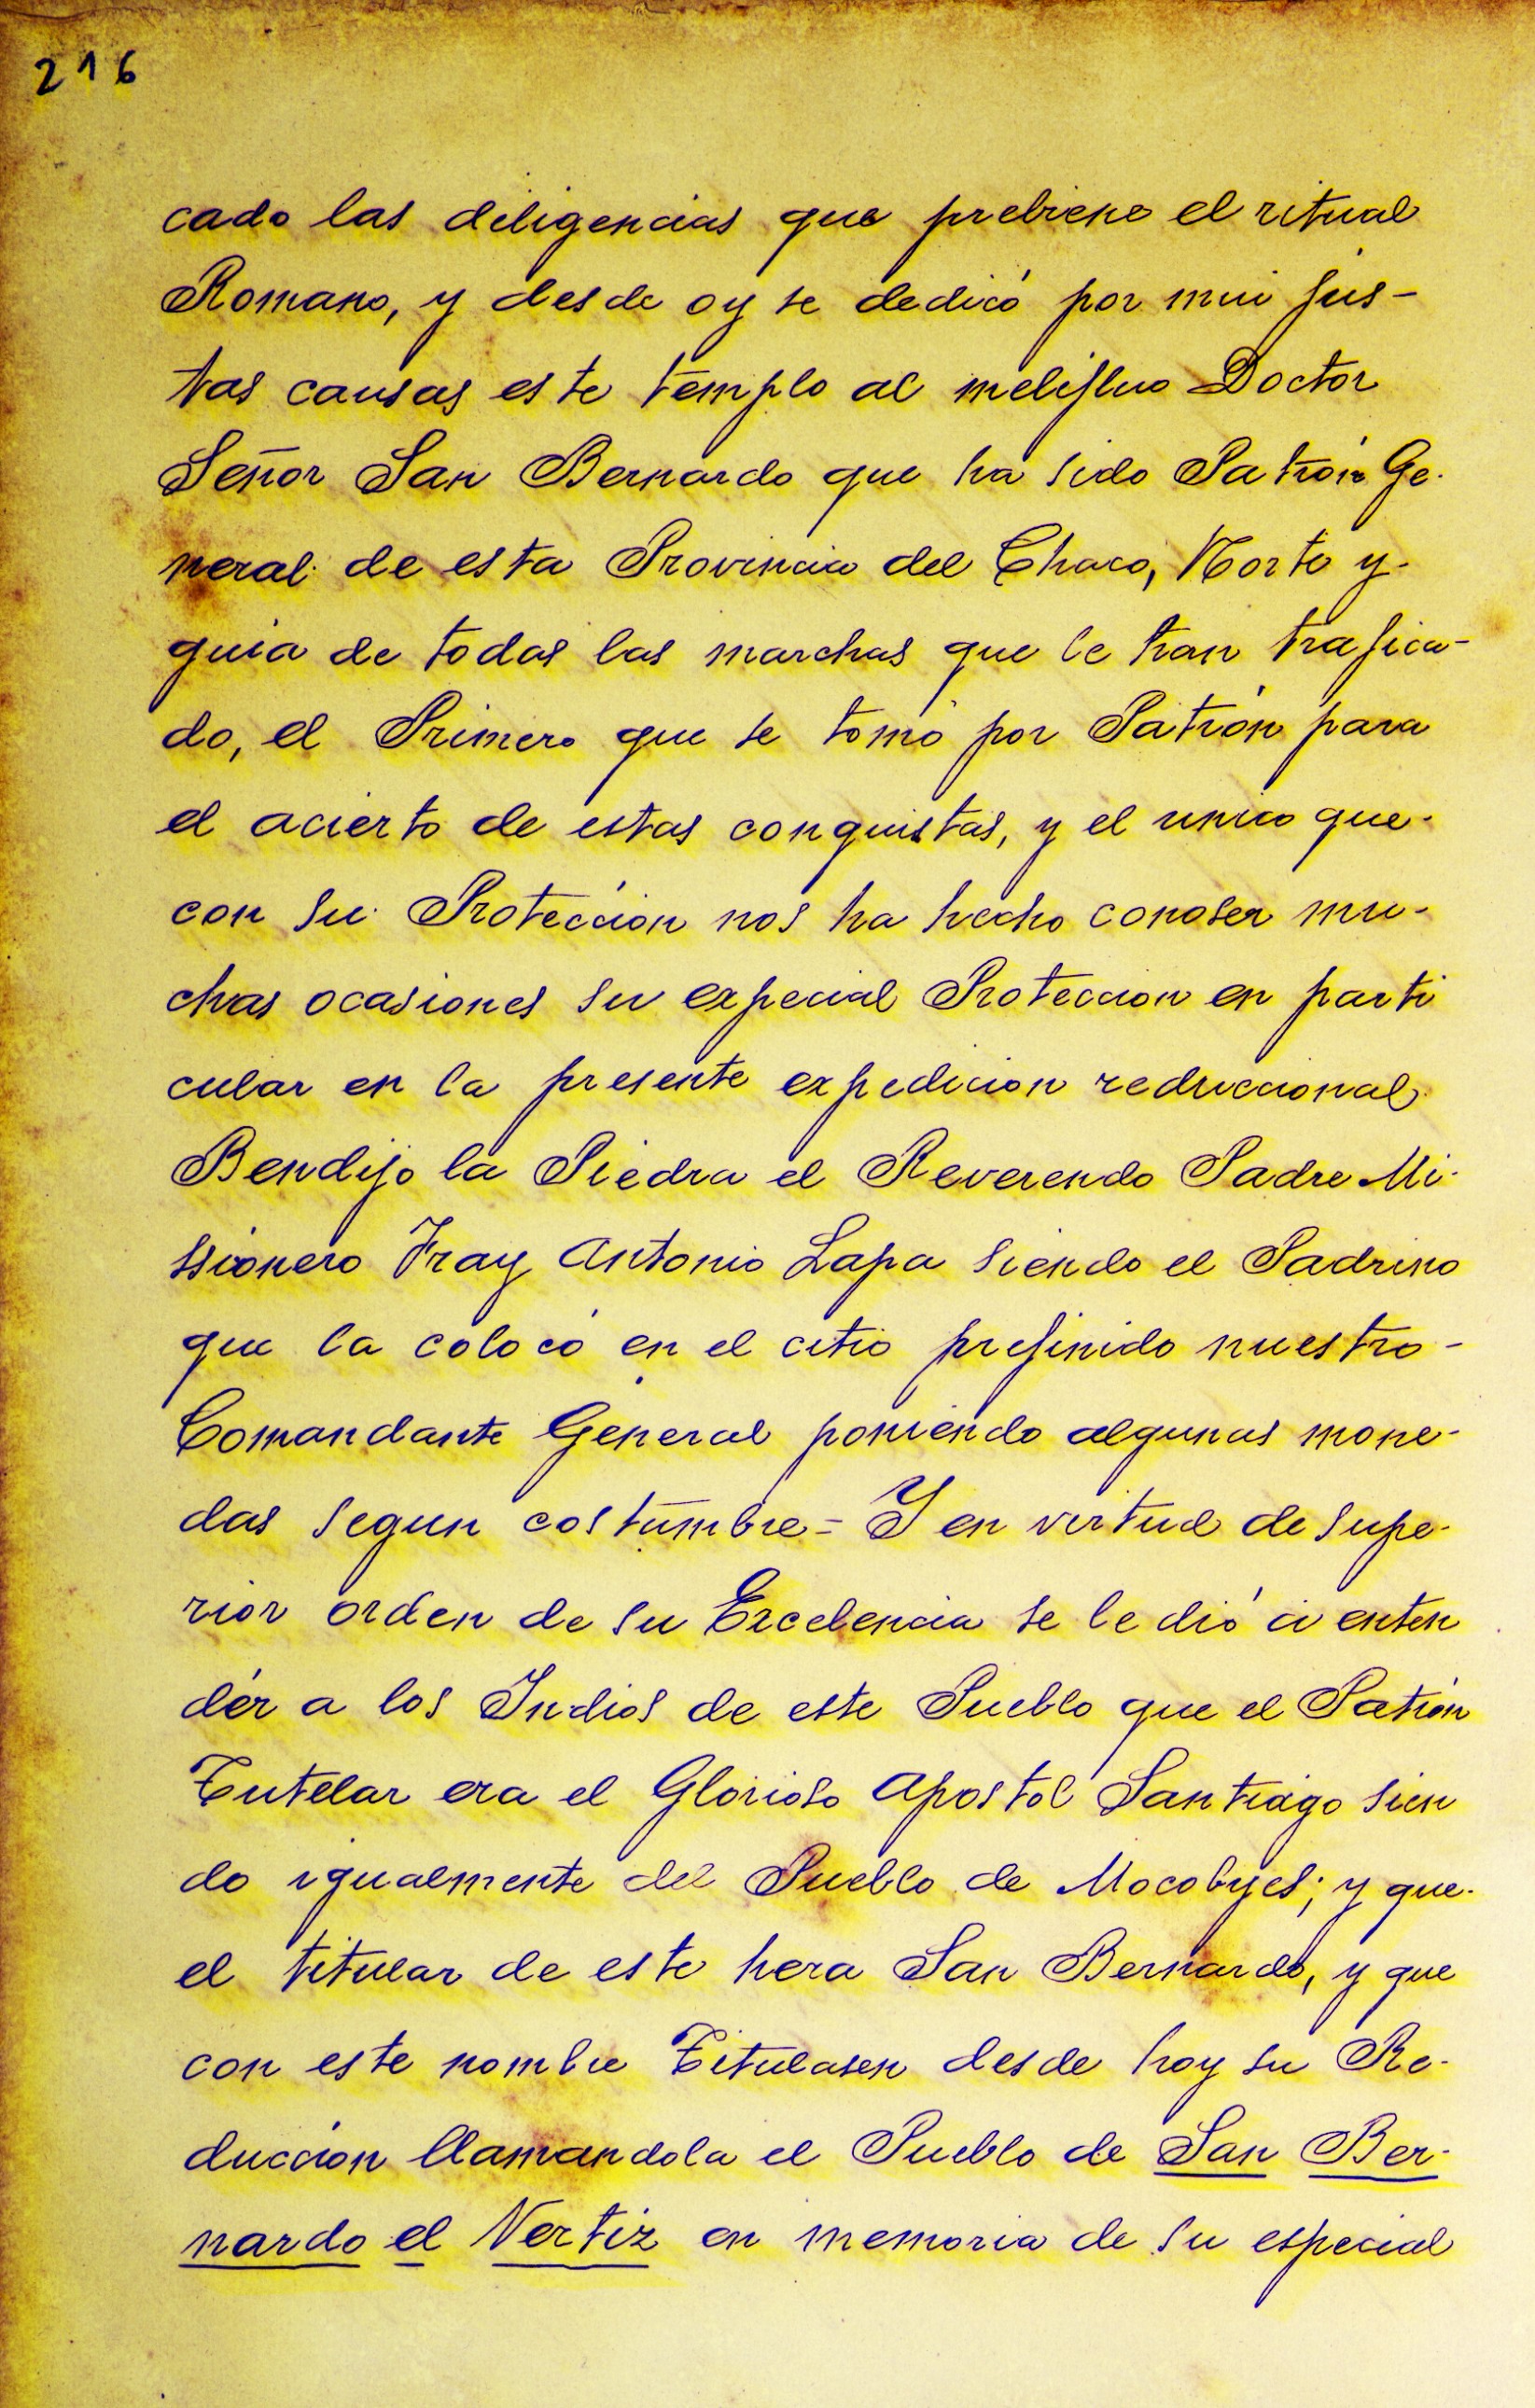 216
cado las diligencias que prebiene el ritual
Romano, y desde oy se dedicó por mui jus-
tas causas este templo al melifluo Doctor
Señor San Bernardo que ha sido Patrón Ge-
neral de esta Provincia del Chaco, Norte y-
guia de todas las marchas que le han trafica-
do, el Primero que se tomó por Patrón para
el acierto de estas conquistas, y el unico que-
con su Protección nos ha hecho conoser mu-
chas ocasiones su expecial Proteccion en parti
cular en la presente expedicion reduccional
Bendijo la Piedra el Reverendo Padre Mi-
ssionero Fray Antonio Lapa siendo el Padrino
que la colocó en el citio prefinido nuestro-
Comandante General poniendo algunas mone-
das segun costumbre= Y en virtud de supe-
rior orden de su Excelencia se le dió a enten
dér a los Indios de este Pueblo que el Patrón
Tutelar era el Glorioso Apostol Santiago sien
do igualmente del Pueblo de Mocobyes; y que-
el titular de este hera San Bernardo, y que
con este nombre Titulasen desde hoy su Re-
duccion llamandola el Pueblo de San Ber-
nardo el Vertiz en memoria de su especial